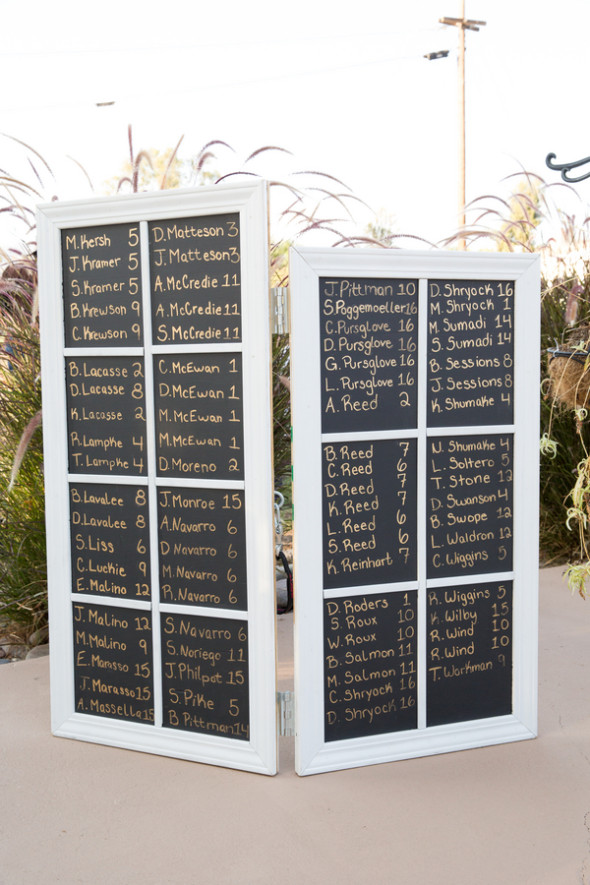 M. Kersh 5
J. Kramer 5
S. Kramer 5
B. Krewson 9
C. Krewson 9
D. Matteson 3
J. Matteson 3
A. McCredie 11
A. McCredie 11
S. McCredie 11
B. Lacasse 2
D. Lacasse 8
K. Lacasse 2
R. Lampke 4
T. Lampke 4
C. McEwan 1
D. McEwan 1
M. McEwan 1
M. McEwan 1
D. Moreno 2
B. Lavalee 8
D. Lavalee 8
S. Liss 6
C. Luckie 9
E. Malino 12
J. Monroe 15
A. Navarro 6
D Navarro 6
M. Navarro 6
R. Navarro 6
J. Malino 12
M. Malino 9
E. Marasso 15
J. Marasso 15
A. Massella 15
S. Navarro 6
S. Noriego 11
J. Philpot 15
S. Pike 5
B Pittman 14
J. Pittman 10
S. Poggemoeller 16
C. Pursglove 16
D. Pursglove 16
G. Pursglove 16
L. Pursglove 16
A. Reed 2
D. Shryock 16
M. Shryock 1
M. Sumadi 14
S. Sumadi 14
B. Sessions 8
J. Sessions 8
K. Shumake 4
B. Reed 7
C. Reed 6
D. Reed 7
K. Reed 7
L. Reed 6
S. Reed 6
K. Reinhart 7
N. Shumake 4
L. Soltero 5
T. Stone 12
D. Swanson 4
B. Swope 12
L. Waldron 12
C. Wiggins 5
D. Roders 1
S. Roux 10
W. Roux 10
B. Salmon 11
M. Salmon 11
C. Shryock 16
D. Shryock 16
R. Wiggins 5
K. Wilby 15
R. Wind 10
R. Wind 10
T. Workman 9